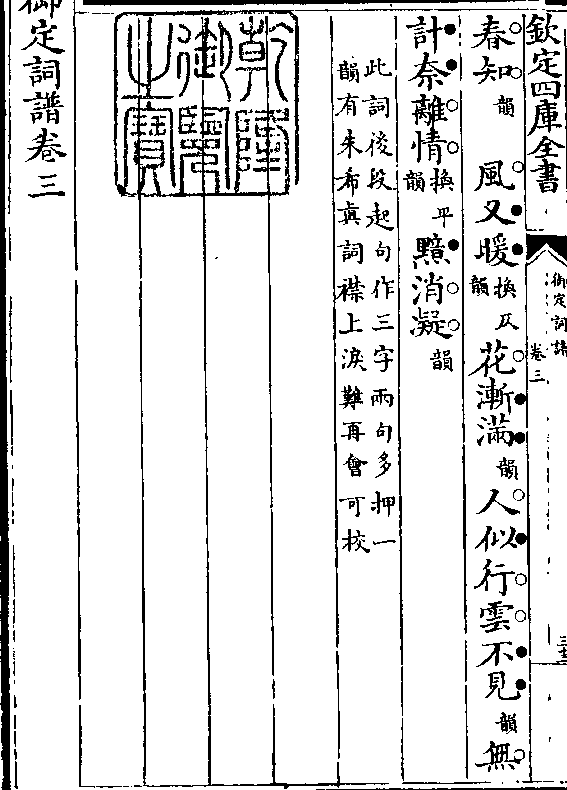 欽定四庫全書
御定詞譜
卷三
三
春知韻 風又暖換仄韻 花漸滿韻 人似行雲不見韻 無
計奈離情換平韻 黯消凝韻
此詞後段起句作三字兩句多押一
韻有朱希真詞襟上淚難再會可校
乾隆御覽之寶
御定詞譜卷三